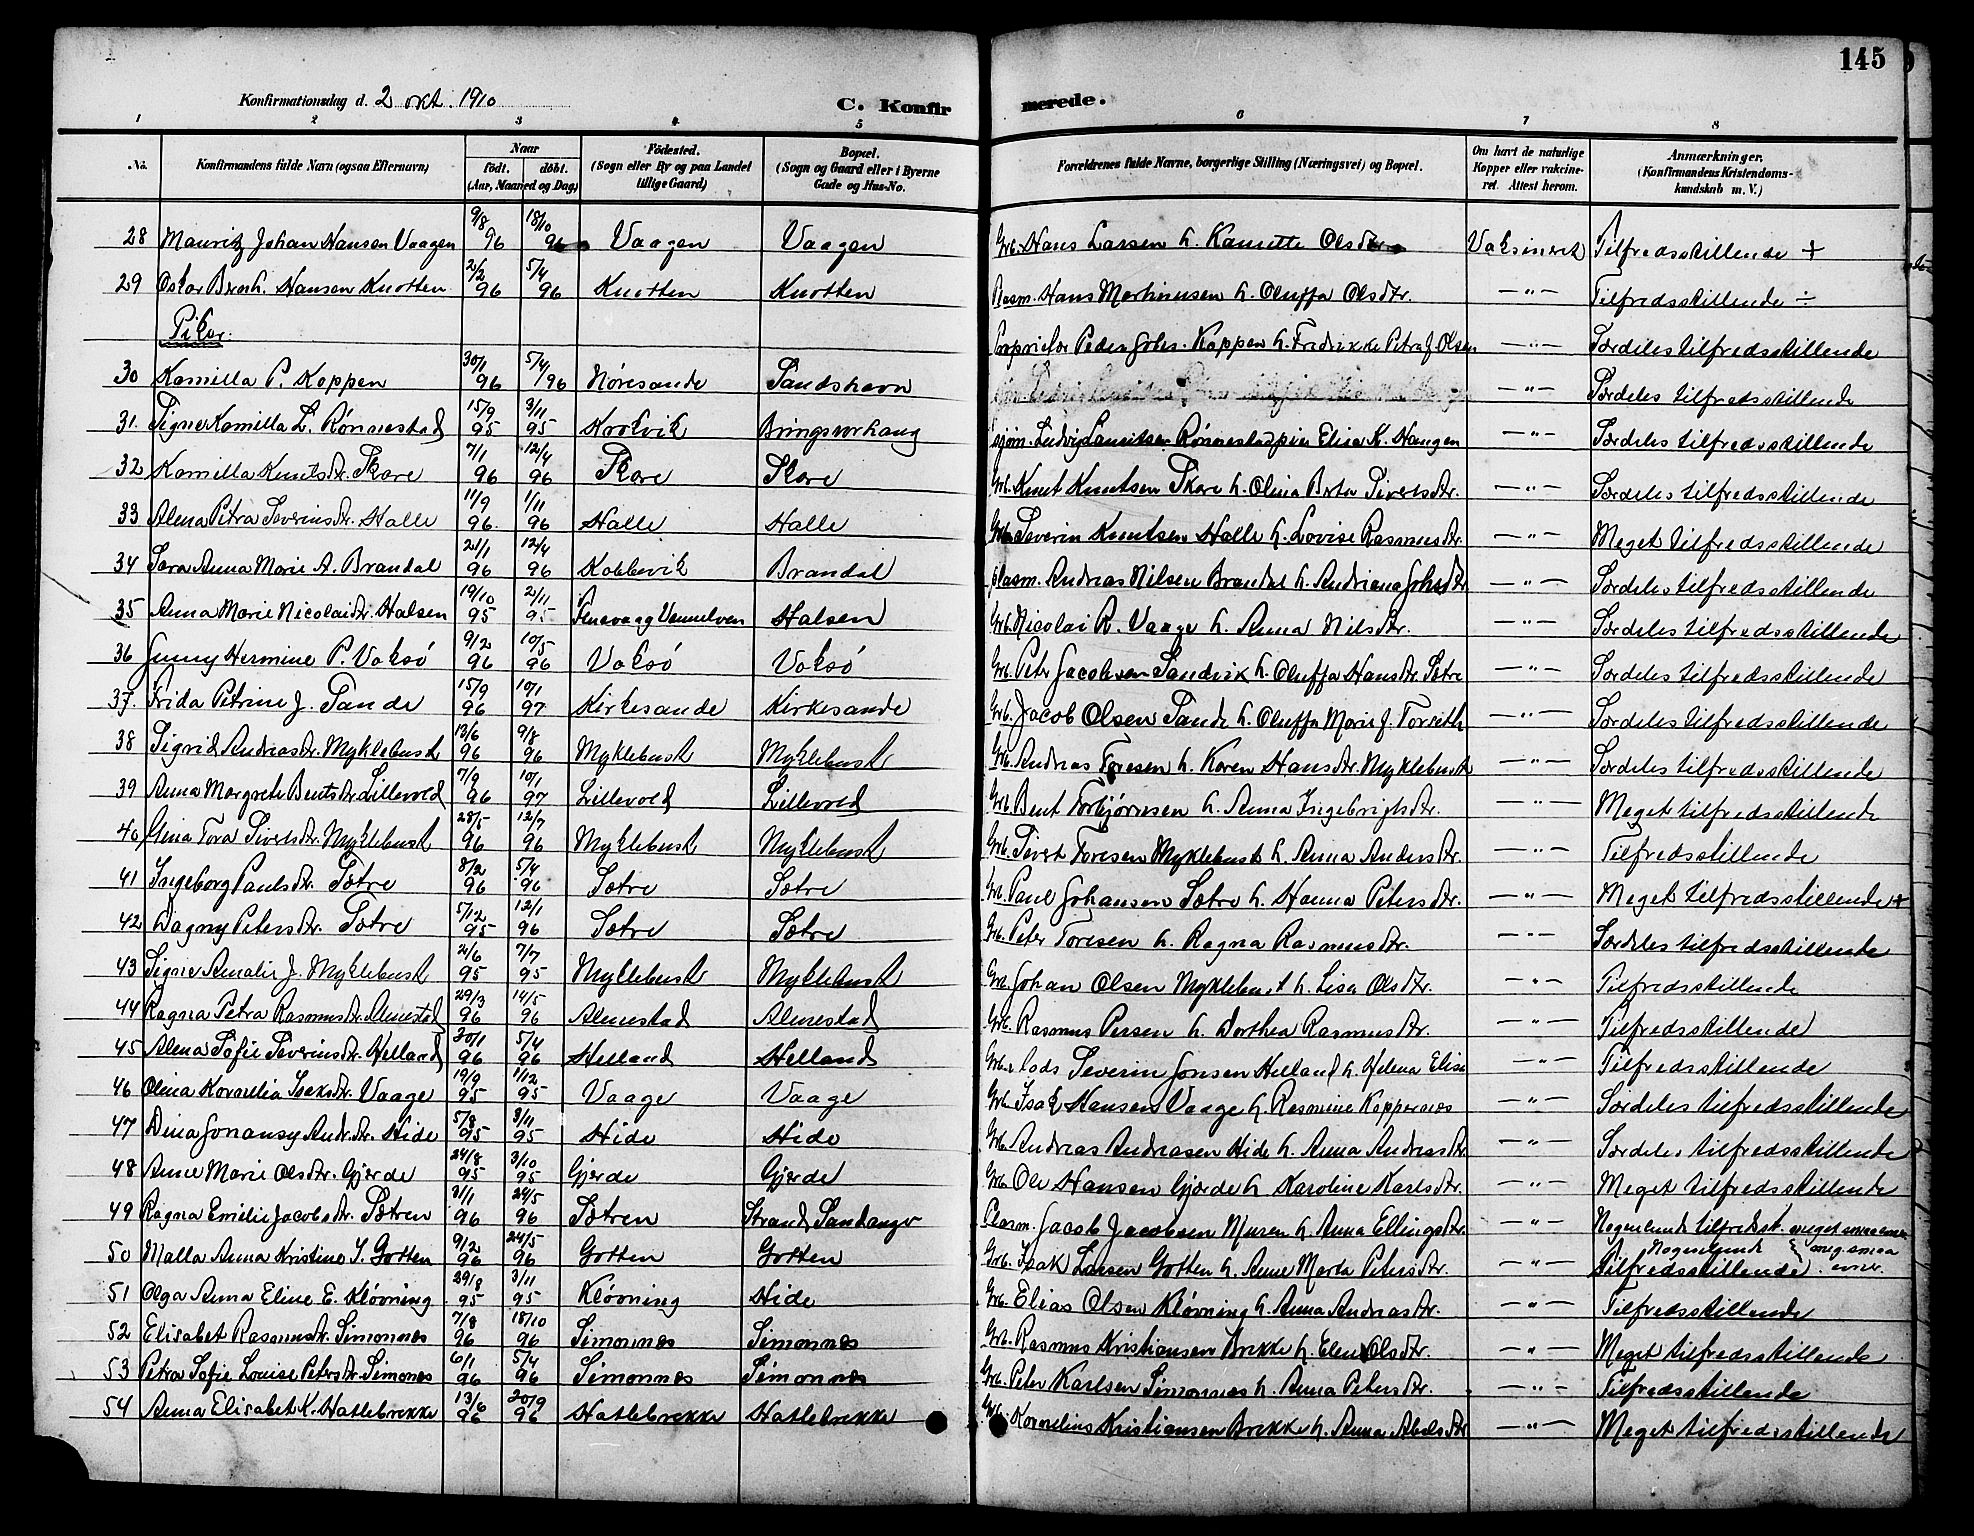 145
Konfirmationsdag d. 2 okt. 1910
C. Konfirmerede.
1 2 3 4 5 6 7 8
No. Konfirmandens fulde Navn (ogsaa Efternavn) Naar födt. döbt. (Aar, Maaned og Dag) Födested. (Sogn eller By og paa Landet tillige Gaard) Bopæl. (Sogn og Gaard eller i Byerne Gade og Hus-No. Forældrenes fulde Navne, borgerlige Stilling (Næringsvei) og Bopæl. Om havt de naturlige Kopper eller vakcineret. Attest herom. Anmærkninger. (Konfirmandens Kristendomskundskab m. V.)
28 Mauritz Johan Hansen Vaagen 9/8 96 18/10 96 Vaagen Vaagen Grb. Hans Larsen h. Olsdtr. Vaksineret Tilfredsstillende +
29 Oskar Hansen Knotten 2/2 96 5/4 96 Knotten Knotten Hans Martinusen h. Oluffa Olsdtr. —"— Tilfredsstillende ÷
Piker.
Proprietær Peder Johs. Koppen h. Fredrikke Petra J Olsen —"— Særdeles tilfredsstillende
30 Kamilla P. Koppen 30/1 96 5/4 96 Nöresande Sandshavn —"— Særdeles tilfredsstillende
31. Signe Kamilla L. Rönnestad 15/9 95 3/11 95 Krokvik Bringsvorhaug Ludvig Lauritsen Rönnestad Elisa K. Haugen —"— Særdeles tilfredsstillende
32 Kamilla Knutsdtr. Skare 7/1 96 12/4 96 Skare Skare Grb. Knut Knutsen Skare h. Olina Brta Sivertsdtr. —"— Særdeles tilfredsstillende
33 Alma Petra Severinsdtr. Halle 11/9 96 1/11 96 Halle Halle Grb. Severin Knutsen Halle h. Lovise Rasmusdtr. —"— Meget tilfredsstillende
34 Sara Anna Marie A. Brandal 21/1 96 12/4 96 Kobbevik Brandal Andreas Nilsen Brandal h. Andriana Johsdtr. —"— Særdeles tilfredsstillende
35 Anna Marie Nicolaidtr. Halsen 19/10 95 2/11 95 Vennelven Halsen Grb. Nicolai R. Vaage h. Anna Nilsdtr. —"— Særdeles tilfredsstillende
36 Jenny Hermine P. Voksö 9/2 96 10/5 96 Voksö Voksö Grb. Peter Jacobsen Sandvik h. Oluffa Hansdtr. Sætre —"— Særdeles tilfredsstillende
37. Frida Petrine J. Sande 15/9 96 10/1 97 Kirkesande Kirkesande Grb. Jacob Olsen Sande h. Oluffa Marie J. Torseth —"— Særdeles tilfredsstillende
38 Sigrid Andreasdtr. Myklebust 13/6 96 9/8 96 Myklebust Myklebust Grb. Andreas Toresen h. Karen Hansdtr. Myklebust —"— Særdeles tilfredsstillende
39 Anna Margrete Bentsdtr. Lillevold 7/9 96 10/1 97 Lillevold Lillevold Grb. Bent Torbjörnsen h. Anna Ingebrigtsdtr. —"— Meget tilfredsstillende
40 Gina Tora Sivertsdtr. Myklebust 28/5 96 12/7 96 Myklebust Myklebust Grb. Sivert Toresen Myklebust h. Anna Andersdtr. —"— Tilfredsstillende
41 Ingeborg Paulsdtr. Sætre 8/2 96 5/4 96 Sætre Sætre Grb. Paul Johansen Sætre h. Hanna Petersdtr. —"— Meget tilfredsstillende +
42 Dagny Petersdtr. Sætre 5/12 95 12/1 96 Sætre Sætre Grb. Peter Toresen h. Ragna Rasmusdtr. —"— Særdeles tilfredsstillende
43 Signe Amalie J. Myklebust 2/6 95 7/7 95 Myklebust Myklebust Grb. Johan Olsen Myklebust h. Lisa Olsdtr. —"— Tilfredsstillende
44 Ragna Petra Rasmusdtr. Almestad 29/3 96 14/5 96 Almestad Almestad Grb. Rasmus Persen h. Dorthea Rasmusdtr. —"— Tilfredsstillende
45 Alma Sofie Severinsdtr. Helland 30/1 96 5/4 96 Helland Helland Severin Jonsen Helland h. Helena Elisa —"— Tilfredsstillende
46 Olina Kornelia Isaksdtr. Vaage 19/9 95 1/12 95 Vaage Vaage Grb. Isak Hansen Vaage h. Rasmine Koppernæs —"— Særdeles tilfredsstillende
47 Dina Johansy Andr.dtr. Hide 5/8 95 3/11 95 Hide Hide Grb. Andreas Andreasen Hide h. Anna Andreasdtr. —"— Særdeles tilfredsstillende
48 Anne Marie Olsdtr. Gjerde 24/8 95 3/10 95 Gjerde Gjerde Grb. Ole Hansen Gjerde h. Karoline Karlsdtr. —"— Meget tilfredsstillende
49 Ragna Emilie Jacobsdtr. Sætren 31/1 96 24/5 96 Sætren Strand, Sandanger Plasm. Jacob Jacobsen Muren h. Anna Ellingsdtr. —"— Nogenlunde tilfredsst. meget smaa evner
50 Malla Anna Kristine I. Gotten 9/2 96 24/5 96 Gotten Gotten Grb. Isak Larsen Gotten h. Anne Marta Petersdtr. —"— Nogenlunde tilfredsstillende } meg. smaa evner.
51 Olga Anna Eline E. Klövning 29/8 95 3/11 95 Klövning Hide Grb. Elias Olsen Klövning h. Anna Andreasdtr. —"— Tilfredsstillende
52 Elisabet Rasmusdtr. Simonnæs 7/8 96 18/10 96 Simonnæs Simonnæs Grb. Rasmus Kristiansen Brekke h. Eline Olsdtr. —"— Meget tilfredsstillende
53 Petra Sofie Louise Petersdtr. Simonæs 6/1 96 5/4 96 Simonnæs Simonnæs Grb. Peter Karlsen Simonnæs h. Anna Petersdtr. —"— Tilfredsstillende
54 Anna Elisabet K. Hatlebrekke 13/6 96 20/9 96 Hatlebrekke Hatlebrekke Grb. Kornelius Kristiansen Brekke h. Anna Abelsdtr —"— Meget tilfredsstillende